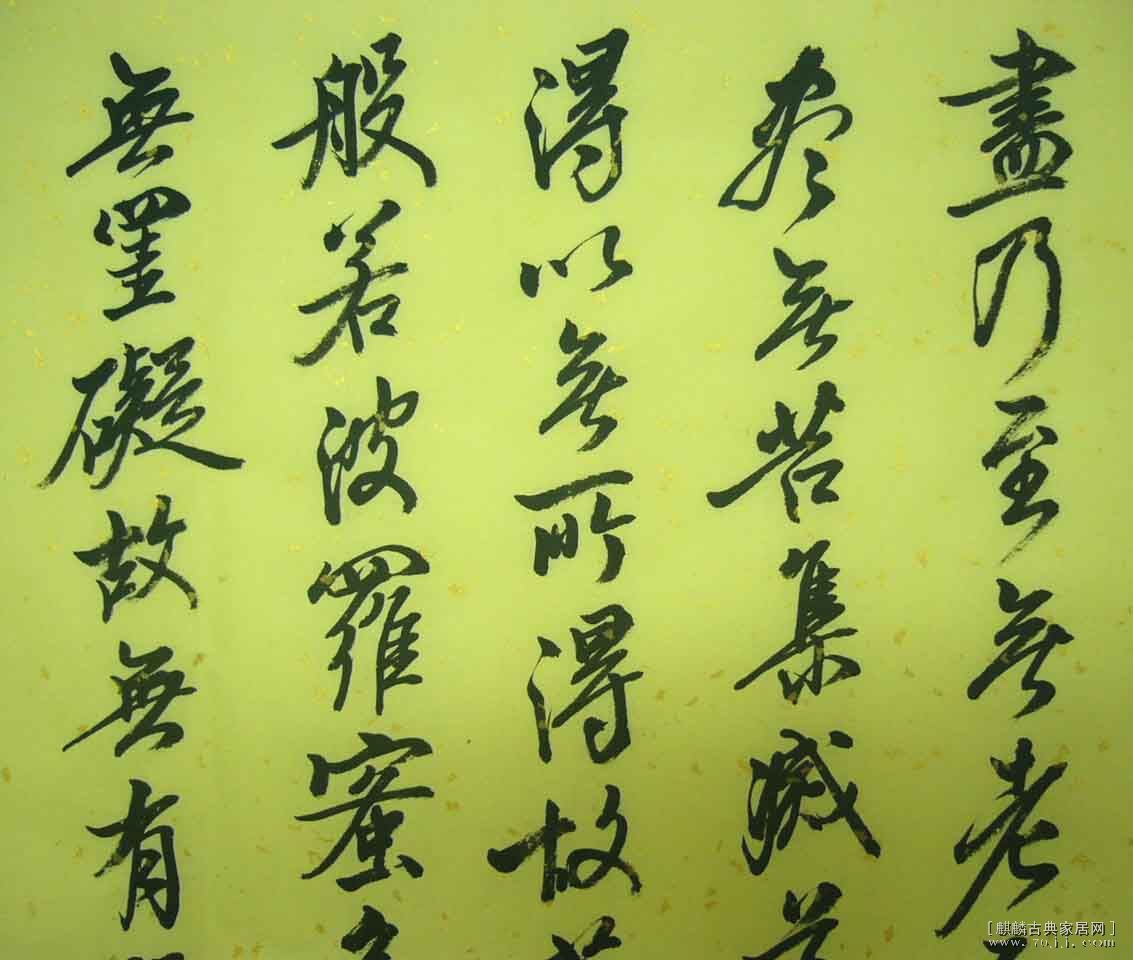 盡乃至無老
尽無苦集滅
得以無所得故
般若波羅蜜
無罣礙故無有
[麒麟古典家居网]